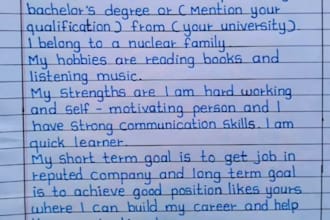 bachelor's degree or (Mention your
qualification) from (your university)
I belong to a nuclear family.
My hobbies are reading books and
listening music.
My strengths are I am hard working
and self - motivating person and I
have strong communication skills. I am
quick learner.
My short term goal is to get job in
reputed company and long term goal
is to achieve good position likes yours
where I can build my career and help